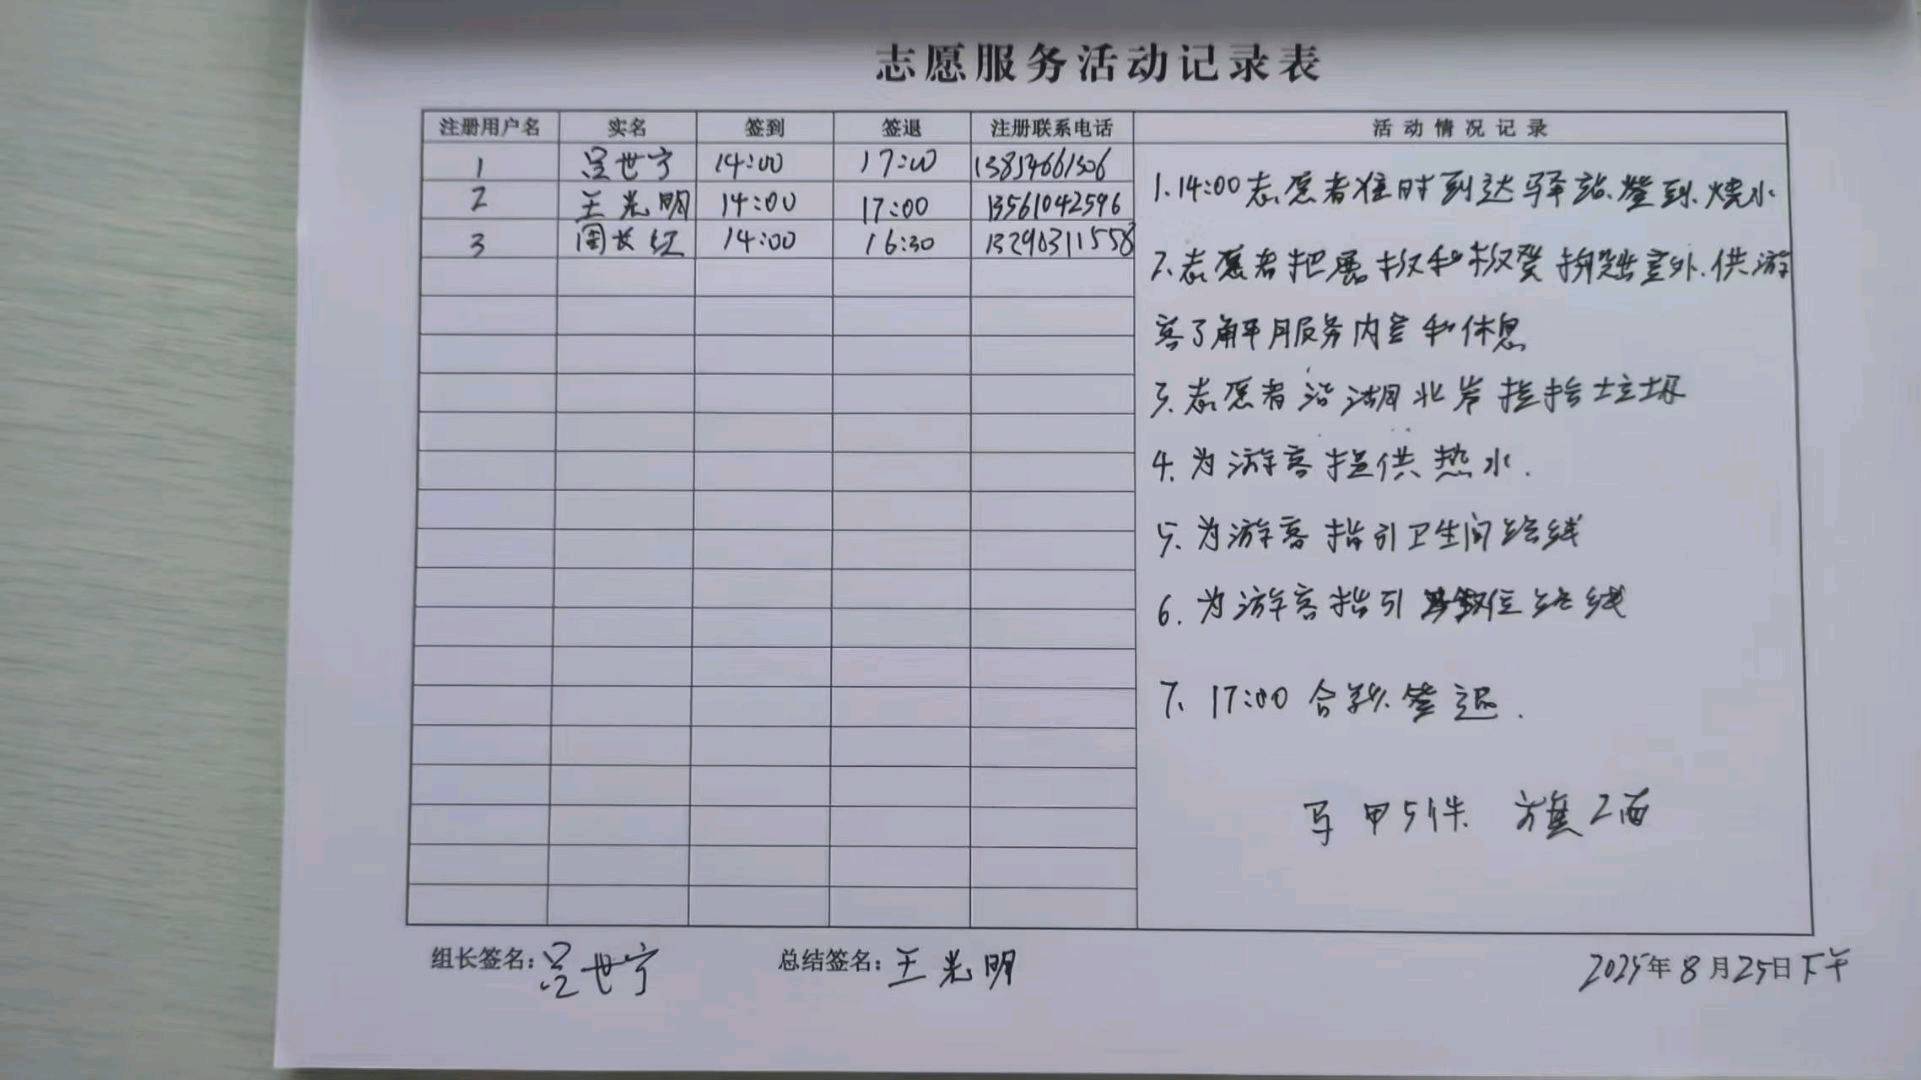 志愿服务活动记录表
注册用户名 实名 签到 签退 注册联系电话 活动情况记录
1 吴世宁 14:00 17:00 13814661306
2 王光明 14:00 17:00 13561042596
3 周长红 14:00 16:30 13290311558
1.14:00志愿者准时到达驿站.签到.烧水
2.志愿者把展板和板凳搬出室外.供游
客了解服务内容和休息
3.志愿者沿湖北岸捡拾垃圾
4.为游客提供热水.
5.为游客指引卫生间路线
6.为游客指引 位路线
7.17:00合影.签退.
马甲5件 旗2面
组长签名:吴世宁 总结签名:王光明 2025年8月25日下午